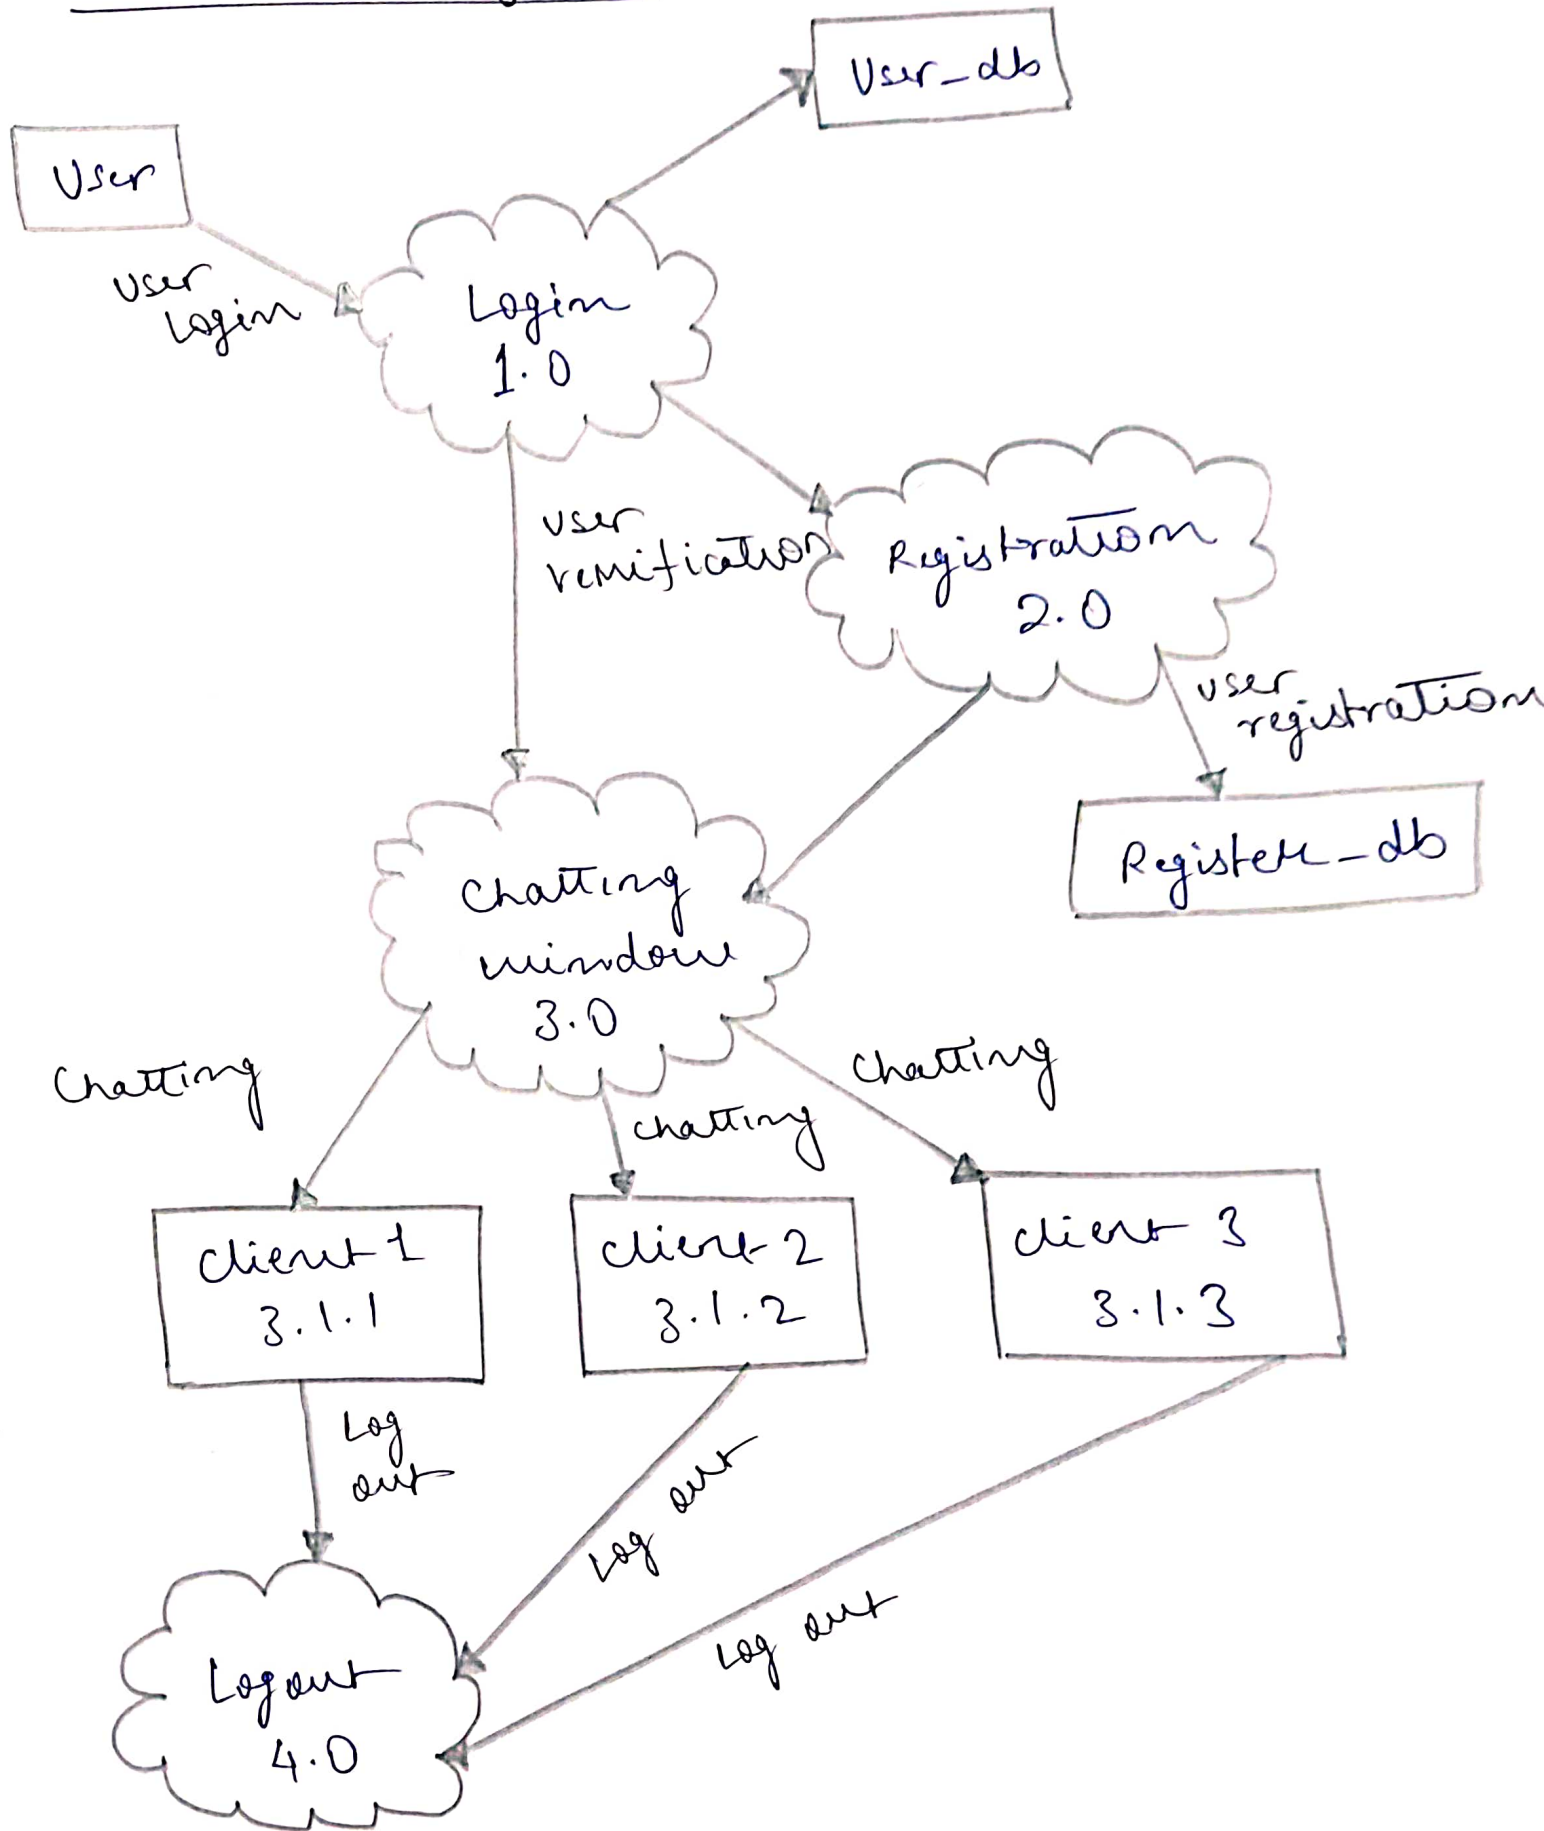 User_db
User
user
Login
Login
1.0
user
verification
Registration
2.0
user
registration
Register_db
Chatting
window
3.0
Chatting
chatting
Chatting
client 1
3.1.1
client 2
3.1.2
client 3
3.1.3
Log
out
Log out
Log out
Logout
4.0